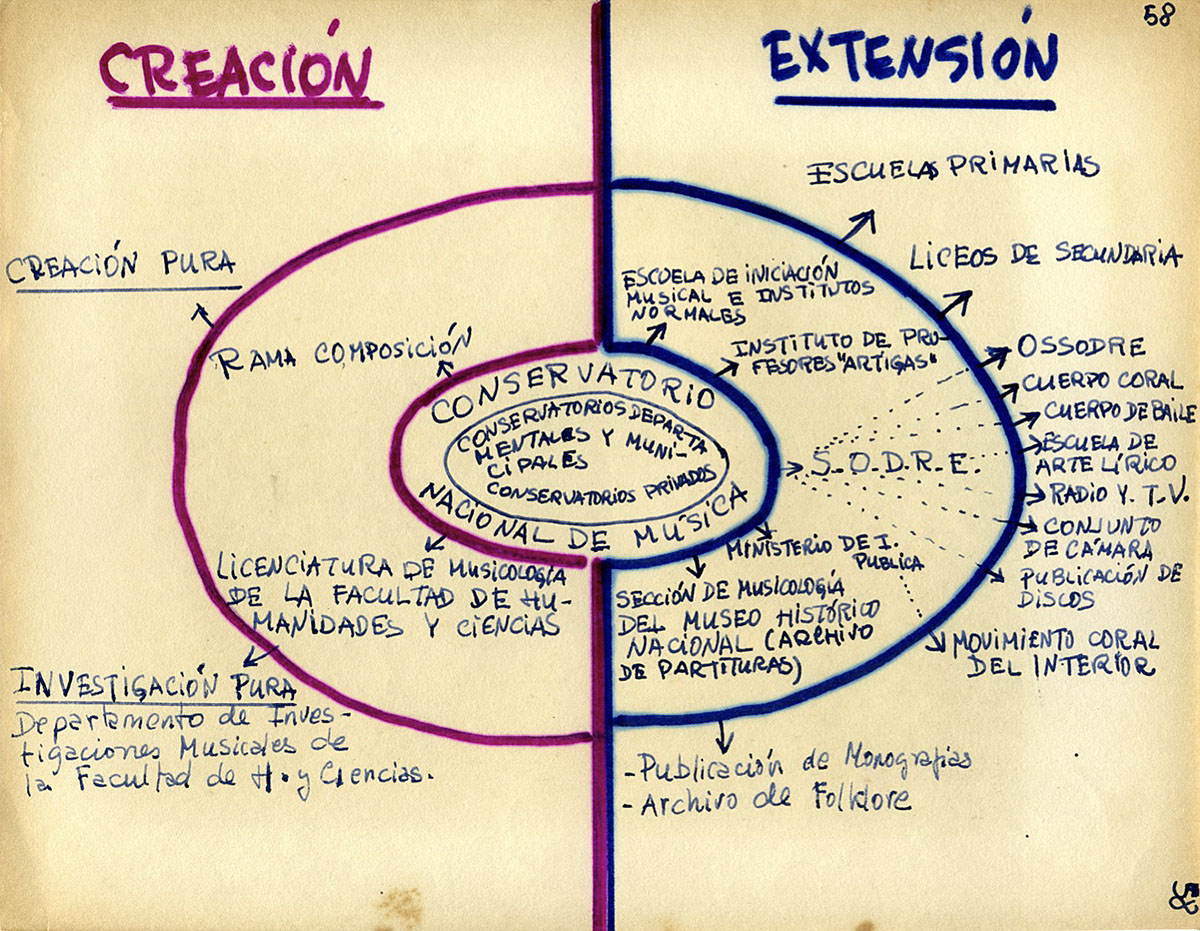 58
CREACIÓN
EXTENSIÓN
ESCUELAS PRIMARIAS
LICEOS DE SECUNDARIA
CREACIÓN PURA
ESCUELA DE INICIACIÓN
MUSICAL E INSTITUTOS
NORMALES
RAMA COMPOSICIÓN
INSTITUTO DE PRO-
FESORES "ARTIGAS"
OSSODRE
CUERPO CORAL
CUERPO DE BAILE
ESCUELA DE
ARTE LÍRICO
RADIO Y T.V.
CONJUNTO
DE CÁMARA
PUBLICACIÓN DE
DISCOS
MOVIMIENTO CORAL
DEL INTERIOR
CONSERVATORIO
CONSERVATORIOS DEPARTA
MENTALES Y MUNI-
CIPALES
CONSERVATORIOS PRIVADOS
NACIONAL DE MÚSICA
S.O.D.R.E.
MINISTERIO DE I.
PUBLICA
LICENCIATURA DE MUSICOLOGÍA
DE LA FACULTAD DE HU-
MANIDADES Y CIENCIAS
SECCIÓN DE MUSICOLOGÍA
DEL MUSEO HISTÓRICO
NACIONAL (ARCHIVO
DE PARTITURAS)
INVESTIGACIÓN PURA
Departamento de Inves-
tigaciones Musicales de
la Facultad de H. y Ciencias.
- Publicación de Monografias
- Archivo de Folklore